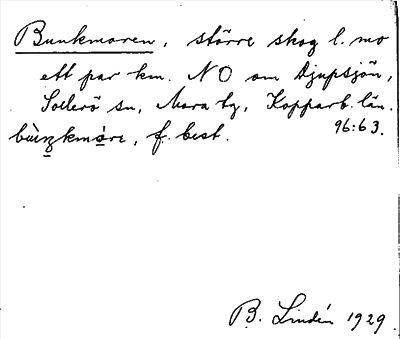 Bunkmoren, större skog l. mo
ett par km. NO om Djupsjön,
Sollerö sn, Mora tg, Kopparb. län.
96:63.
f. best.
B. Lindén 1929.